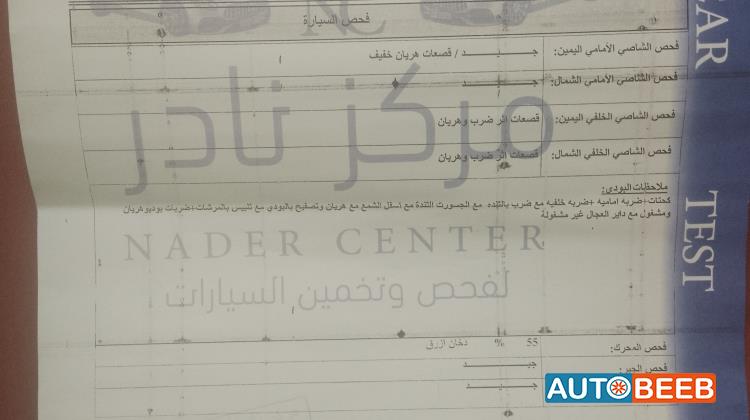 فحص السيارة
فحص الشاصي الأمامي اليمين: جيد / قصعات هريان خفيف
فحص الشاصي الأمامي الشمال: جيد
فحص الشاصي الخلفي اليمين: قصعات اثر ضرب وهريان
فحص الشاصي الخلفي الشمال: قصعات اثر ضرب وهريان
مركز نادر
ملاحظات البودي:
كحتات+ضربه اماميه +ضربه خلفيه مع ضرب بالتنده مع الجسورت التندة مع اسفل الشمع مع هريان وتصفيح بالبودي مع تلبيس بالمرشات+ضربات بوديوهريان
ومشغول مع داير العجال غير مشغولة
NADER CENTER
لفحص وتخمين السيارات
فحص المحرك: 55 % دخان ازرق
فحص الجير: جيد
جيد
EAR
TEST
AUTOBEEB